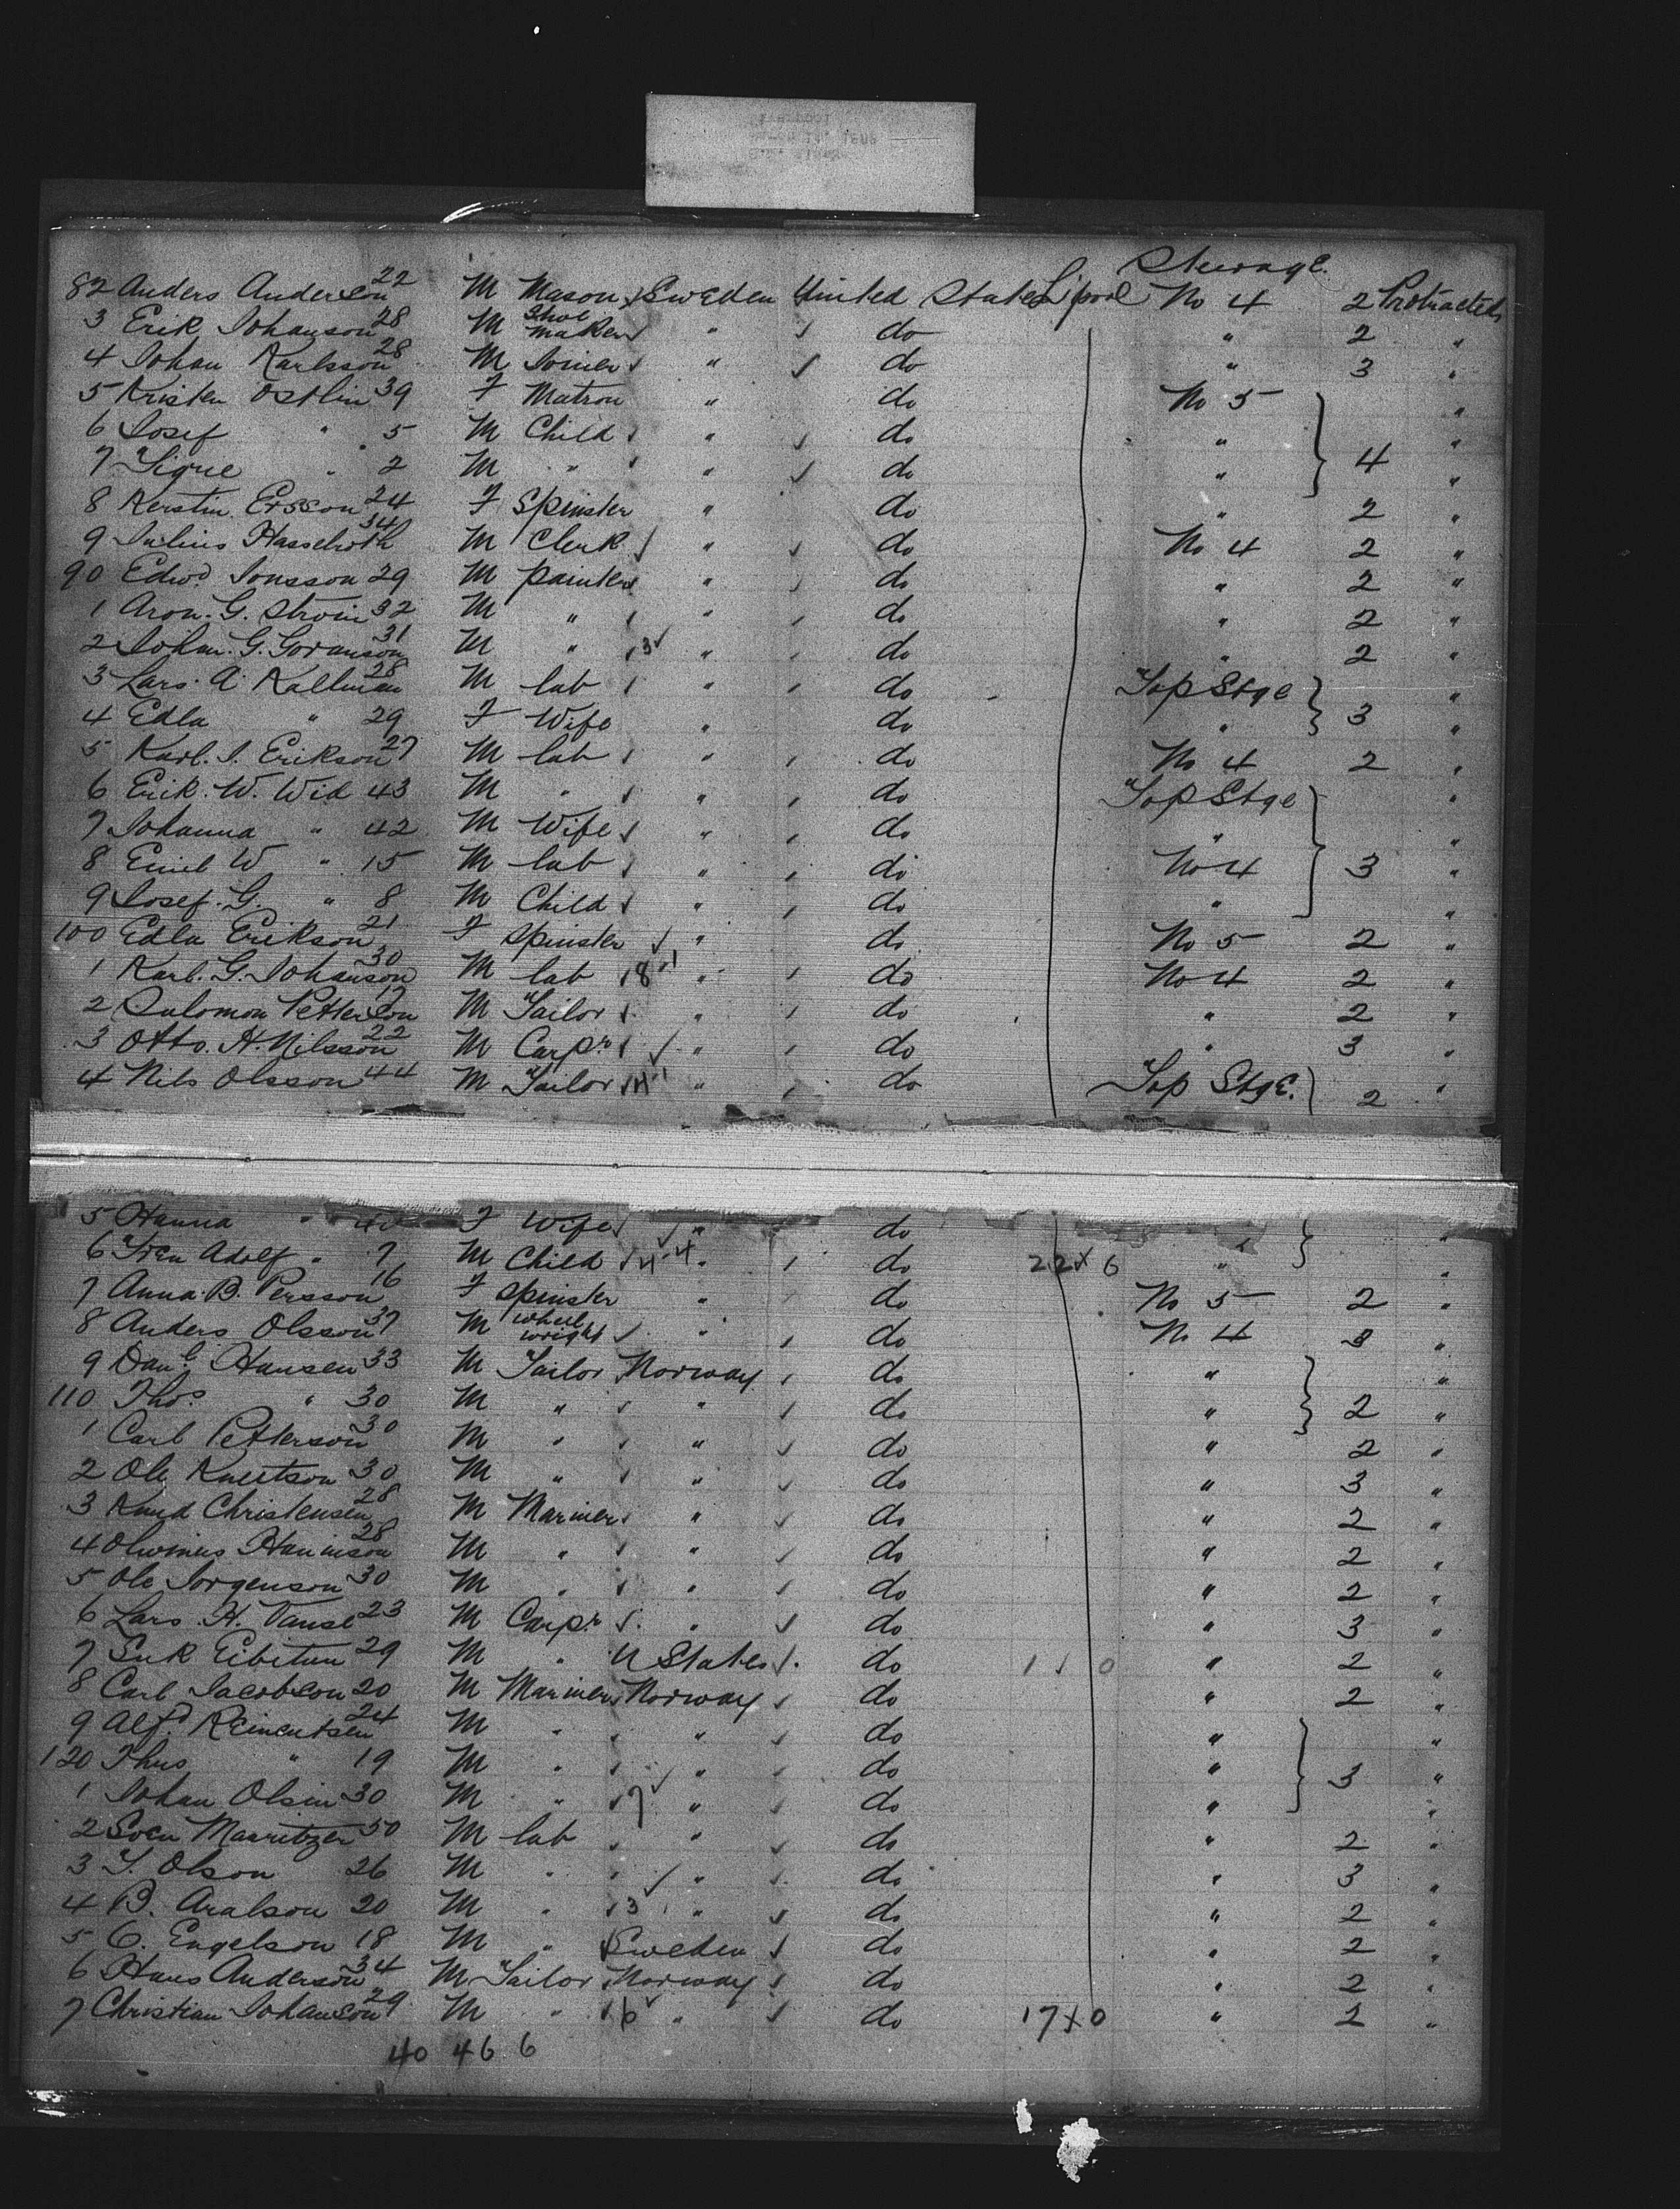 Steerage.
82 Anders Anderson 22 M Mason Sweden United States Lipool No 4 2 Protracted
3 Erik Johanson 28 M Shoe maker " do " 2 "
4 Johan Karlsson 28 M Joiner " do " 3 "
5 Kristen Ostlin 39 F Matron " do No 5 "
6 Josef " 5 M Child " do " "
7 Signe " 2 M " " do " 4 "
8 Kerstin Ersson 24 F Spinster " do " 2 "
9 Julius Hasselroth 34 M Clerk " do No 4 2 "
90 Edwd Jonsson 29 M painter " do " 2 "
1 Aron. G. Strom 32 M " " do " 2 "
2 Johan. G. Goranson 31 M " 3 " do " 2 "
3 Lars. A. Kallman 28 M lab " do Top Stge "
4 Edla " 29 F Wife " do " 3 "
5 Karl. J. Erikson 27 M lab " do No 4 2 "
6 Erik. W. Wid 43 M " " do Top Stge "
7 Johanna " 42 M Wife " do " "
8 Emil W " 15 M lab " do No 4 3 "
9 Josef. G. " 8 M Child " do " "
100 Edla Erikson 21 F Spinster " do No 5 2 "
1 Karl. G. Johanson 30 M lab 8-1 " do No 4 2 "
2 Salomon Petterson M Tailor " do " 2 "
3 Otto. H. Nilsson 22 M Carpr " do " 3 "
4 Nils Olsson 44 M Tailor " do Top Stge. 2 "
5 Hanna " F Wife " do "
6 Adolf " 7 M Child 4-4 " do 22 x 6 " "
7 Anna. B. Persson 16 F Spinster " do No 5 2 "
8 Anders Olsson 37 M wheel wright " do No 4 3 "
9 Danl Hansen 33 M Tailor Norway do " "
110 Thos " 30 M " " do " 2 "
1 Carl Petterson 30 M " " do " 2 "
2 Ole Knutson 30 M " " do " 3 "
3 Knud Christensen 28 M Mariner " do " 2 "
4 28 M " " do " 2 "
5 Ole Jorgenson 30 M " " do " 2 "
6 Lars. H. Vanse 23 M Carpr " do " 3 "
7 29 M " U States do 1 0 " 2 "
8 Carl Jacobson 20 M Mariner Norway do " 2 "
9 Alfd Reinentsen 24 M " " do " "
120 " 19 M " " do " 3 "
1 Johan Olsin 30 M " 7 " do " "
2 Sven Mauritzen 50 M lab " do " 2 "
3 T. Olson 26 M " " do " 3 "
4 B. Aralson 20 M " 3 " do " 2 "
5 C. Engelson 18 M " Sweden do " 2 "
6 Hans Anderson 34 M Tailor Norway do " 2 "
7 Christian Johanson 29 M " 6 " do 17 x 0 " 2 "
40 46 6